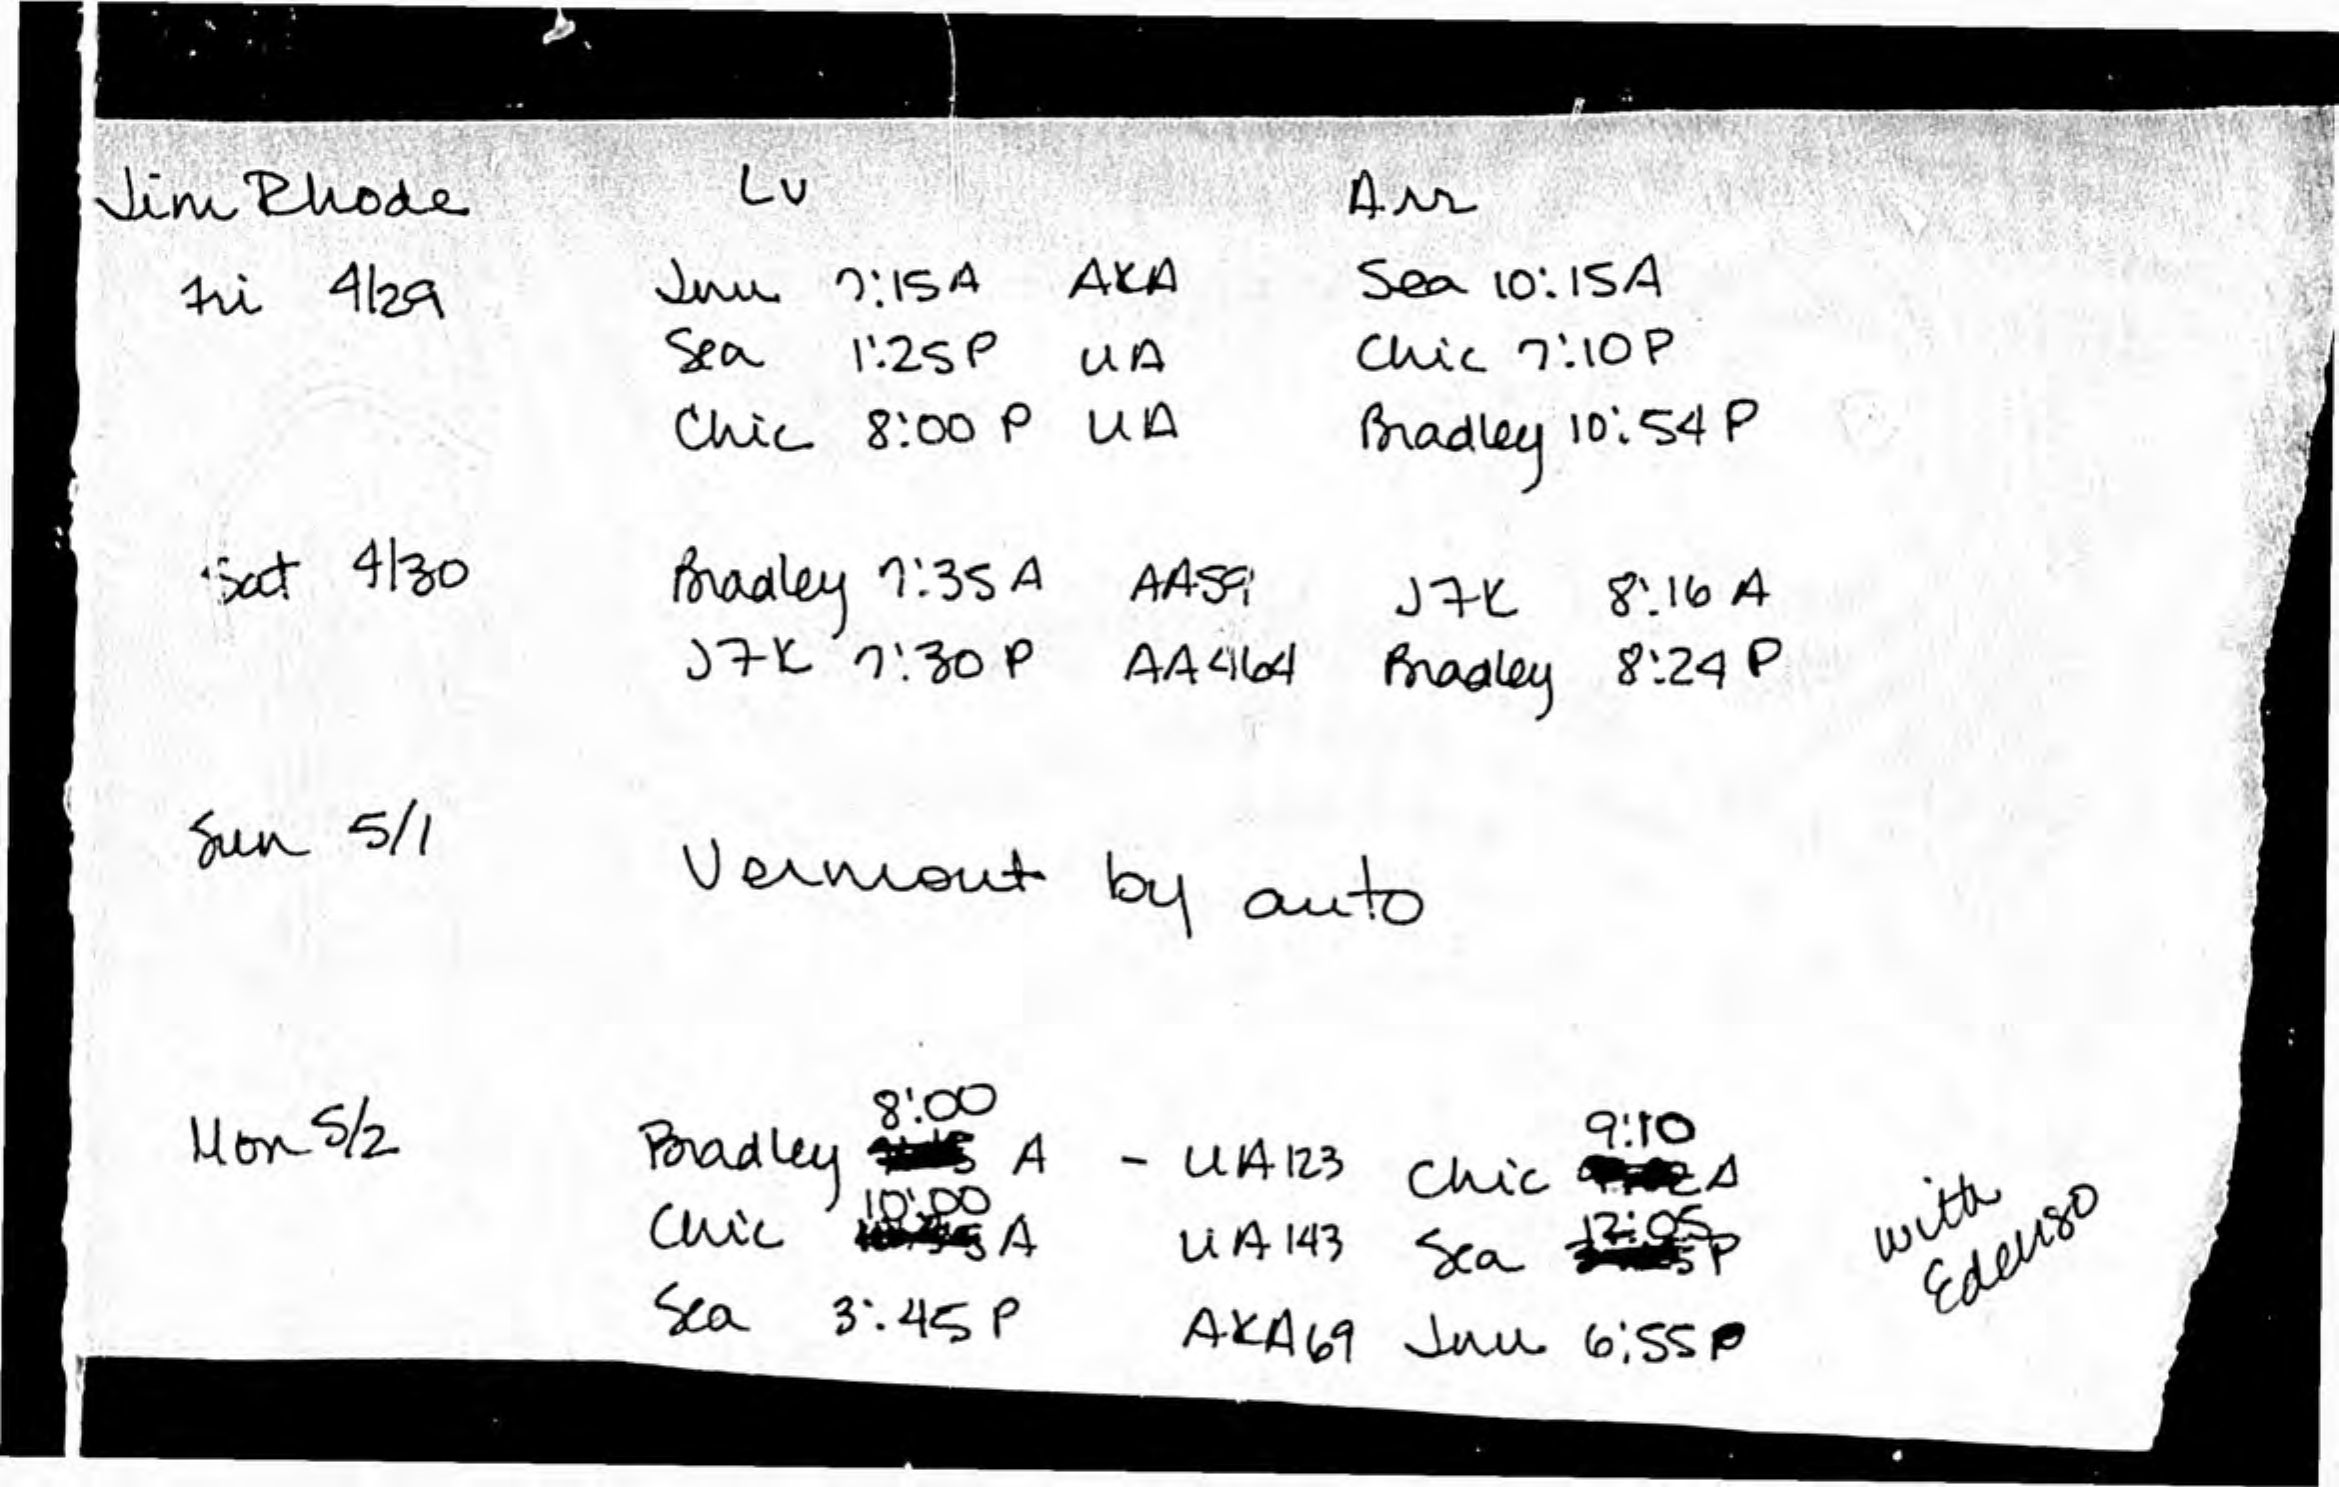 Jim Rhode Lv Arr
Fri 4/29 Jnu 7:15A AKA Sea 10:15A
Sea 1:25P UA Chic 7:10P
Chic 8:00P UA Bradley 10:54P
Sat 4/30 Bradley 7:35A AA59 JFK 8:16A
JFK 7:30P AA464 Bradley 8:24P
Sun 5/1 Vermont by auto
8:00 9:10
Mon 5/2 Bradley A - UA123 Chic A
10:00 12:05
Chic A UA143 Sea P
Sea 3:45P AKA69 Jnu 6:55P
with
Edenso